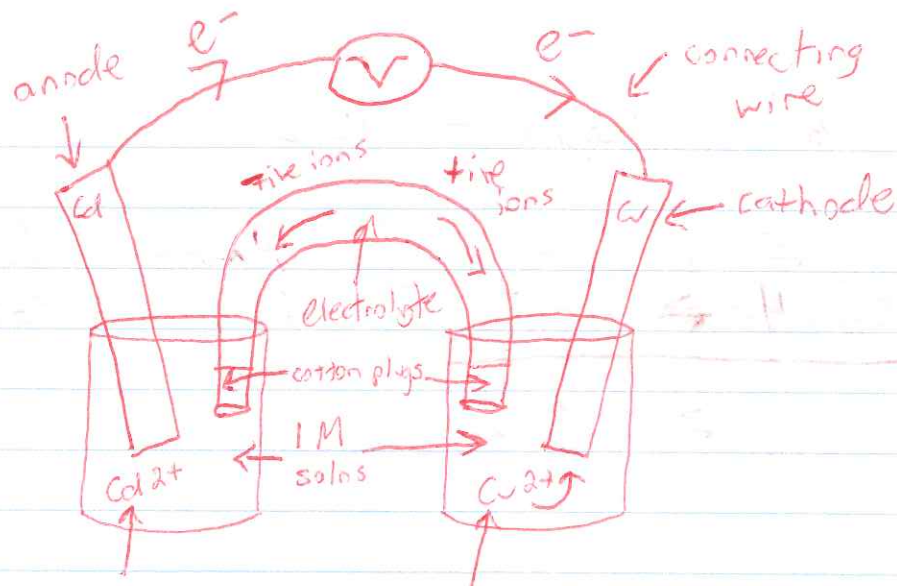 e⁻
V
e⁻
anode
connecting
wire
-tive ions
+tive
ions
Cd
Cu
cathode
electrolyte
cotton plugs
1 M
solns
Cd²⁺
Cu²⁺